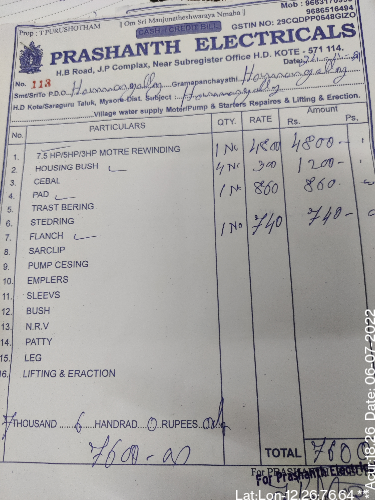 Prop : T PURUSHOTHAM [ Om Sri Manjunatheshwaraya Nmaha ] Mob : 9663170956
CASH / CREDIT BILL 9686516494
GSTIN NO: 29CQDPP0648G1ZO
PRASHANTH ELECTRICALS
H.B Road, J.P Complax, Near Subregister Office H.D. KOTE - 571 114.
No. 113 Date
Smt/Sri To P.D.O. Gramapanchayathi
H.D Kote/Saraguru Taluk, Mysore Dist. Subject :
Village water supply Moter/Pump & Starters Repaires & Lifting & Erection.
No. PARTICULARS QTY. RATE Amount Rs. Ps.
1. 7.5 HP/5HP/3HP MOTRE REWINDING 1 No 4800 4800.-
2. HOUSING BUSH 4 No 300 1200-
3. CEBAL
4. PAD 1 No 860 860.
5. TRAST BERING
6. STEDRING
7. FLANCH 1 No 740 740-
8. SARCLIP
9. PUMP CESING
10. EMPLERS
11. SLEEVS
12. BUSH
13. N.R.V
14. PATTY
15. LEG
16. LIFTING & ERACTION
7 THOUSAND 6 HANDRAD 0 RUPEES
7600-00
TOTAL 7600
For PRASHANTH
For Prashanth Electricals
Lat:Lon-12.26:76.64 **Acu:18.26 Date: 06-07-2022